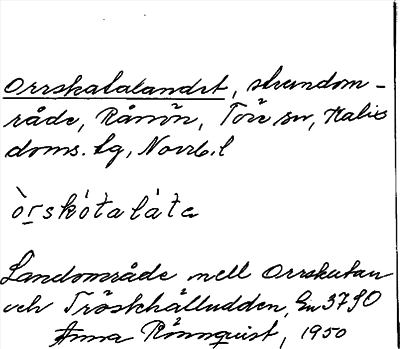 Orrskatalandet, strandom-
råde, Rånön, Töre sn, Kalix
doms. tg, Norrb. l
òrskátaláta
Landområde mell Orrskatan
och Tröskhälludden, En 3790
Anna Rönnquist, 1950